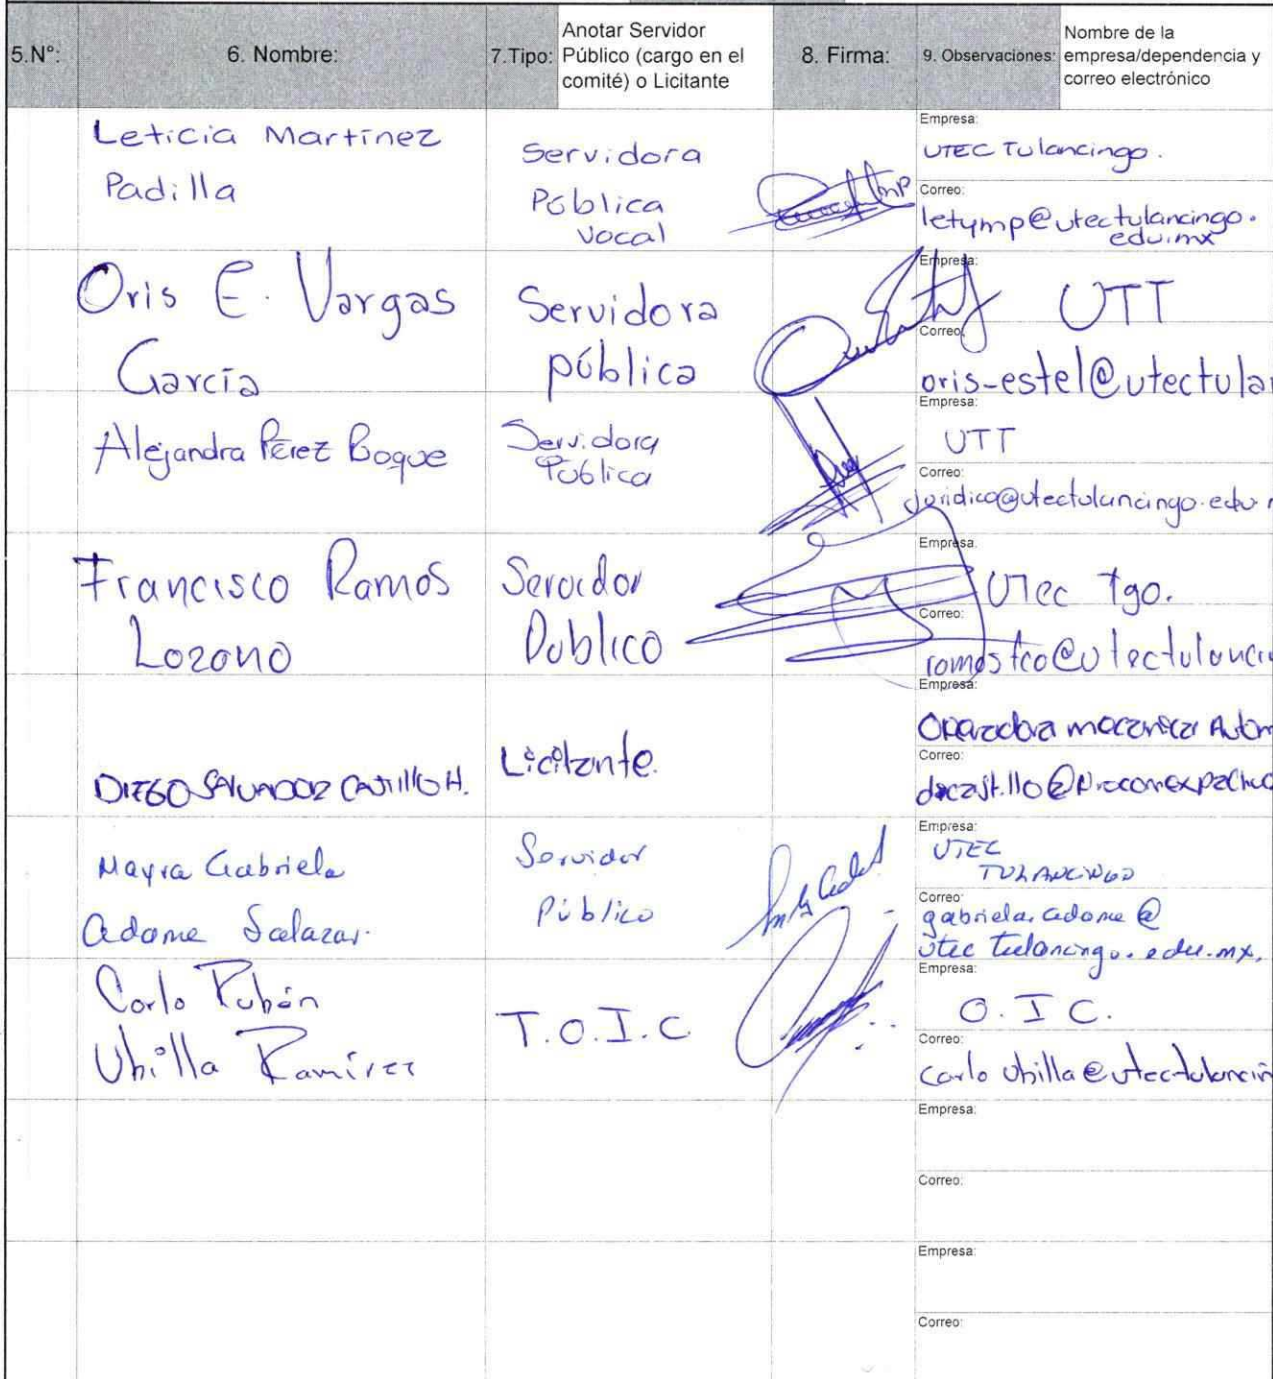 5.N°:
6. Nombre:
7.Tipo:
Anotar Servidor
Público (cargo en el
comité) o Licitante
8. Firma:
9. Observaciones:
Nombre de la
empresa/dependencia y
correo electrónico
Leticia Martínez
Padilla
Servidora
Pública
Vocal
Empresa:
UTEC Tulancingo.
Correo:
letymp@utectulancingo.
edu.mx
Oris E. Vargas
García
Servidora
pública
Empresa:
UTT
Correo:
oris-estel@utectular
Alejandra Pérez Boque
Servidora
Pública
Empresa:
UTT
Correo:
juridico@utectulancingo.edu.
Francisco Ramos
Lozano
Servidor
Publico
Empresa:
UTec Tgo.
Correo:
ramosfco@utectulanci
DIEGO SALVADOR CASTILLO H.
Licitante.
Empresa:
Operadora mecanica Autom
Correo:
Mayra Gabriela
Adame Salazar.
Servidor
Público
Empresa:
UTEC
TULANCINGO
Correo:
gabriela.adame@
utectulancingo.edu.mx.
Carlo Rubén
Ubilla Ramírez
T.O.I.C
Empresa:
O.I C.
Correo:
carlo ubilla@utectulancin
Empresa:
Correo:
Empresa:
Correo: